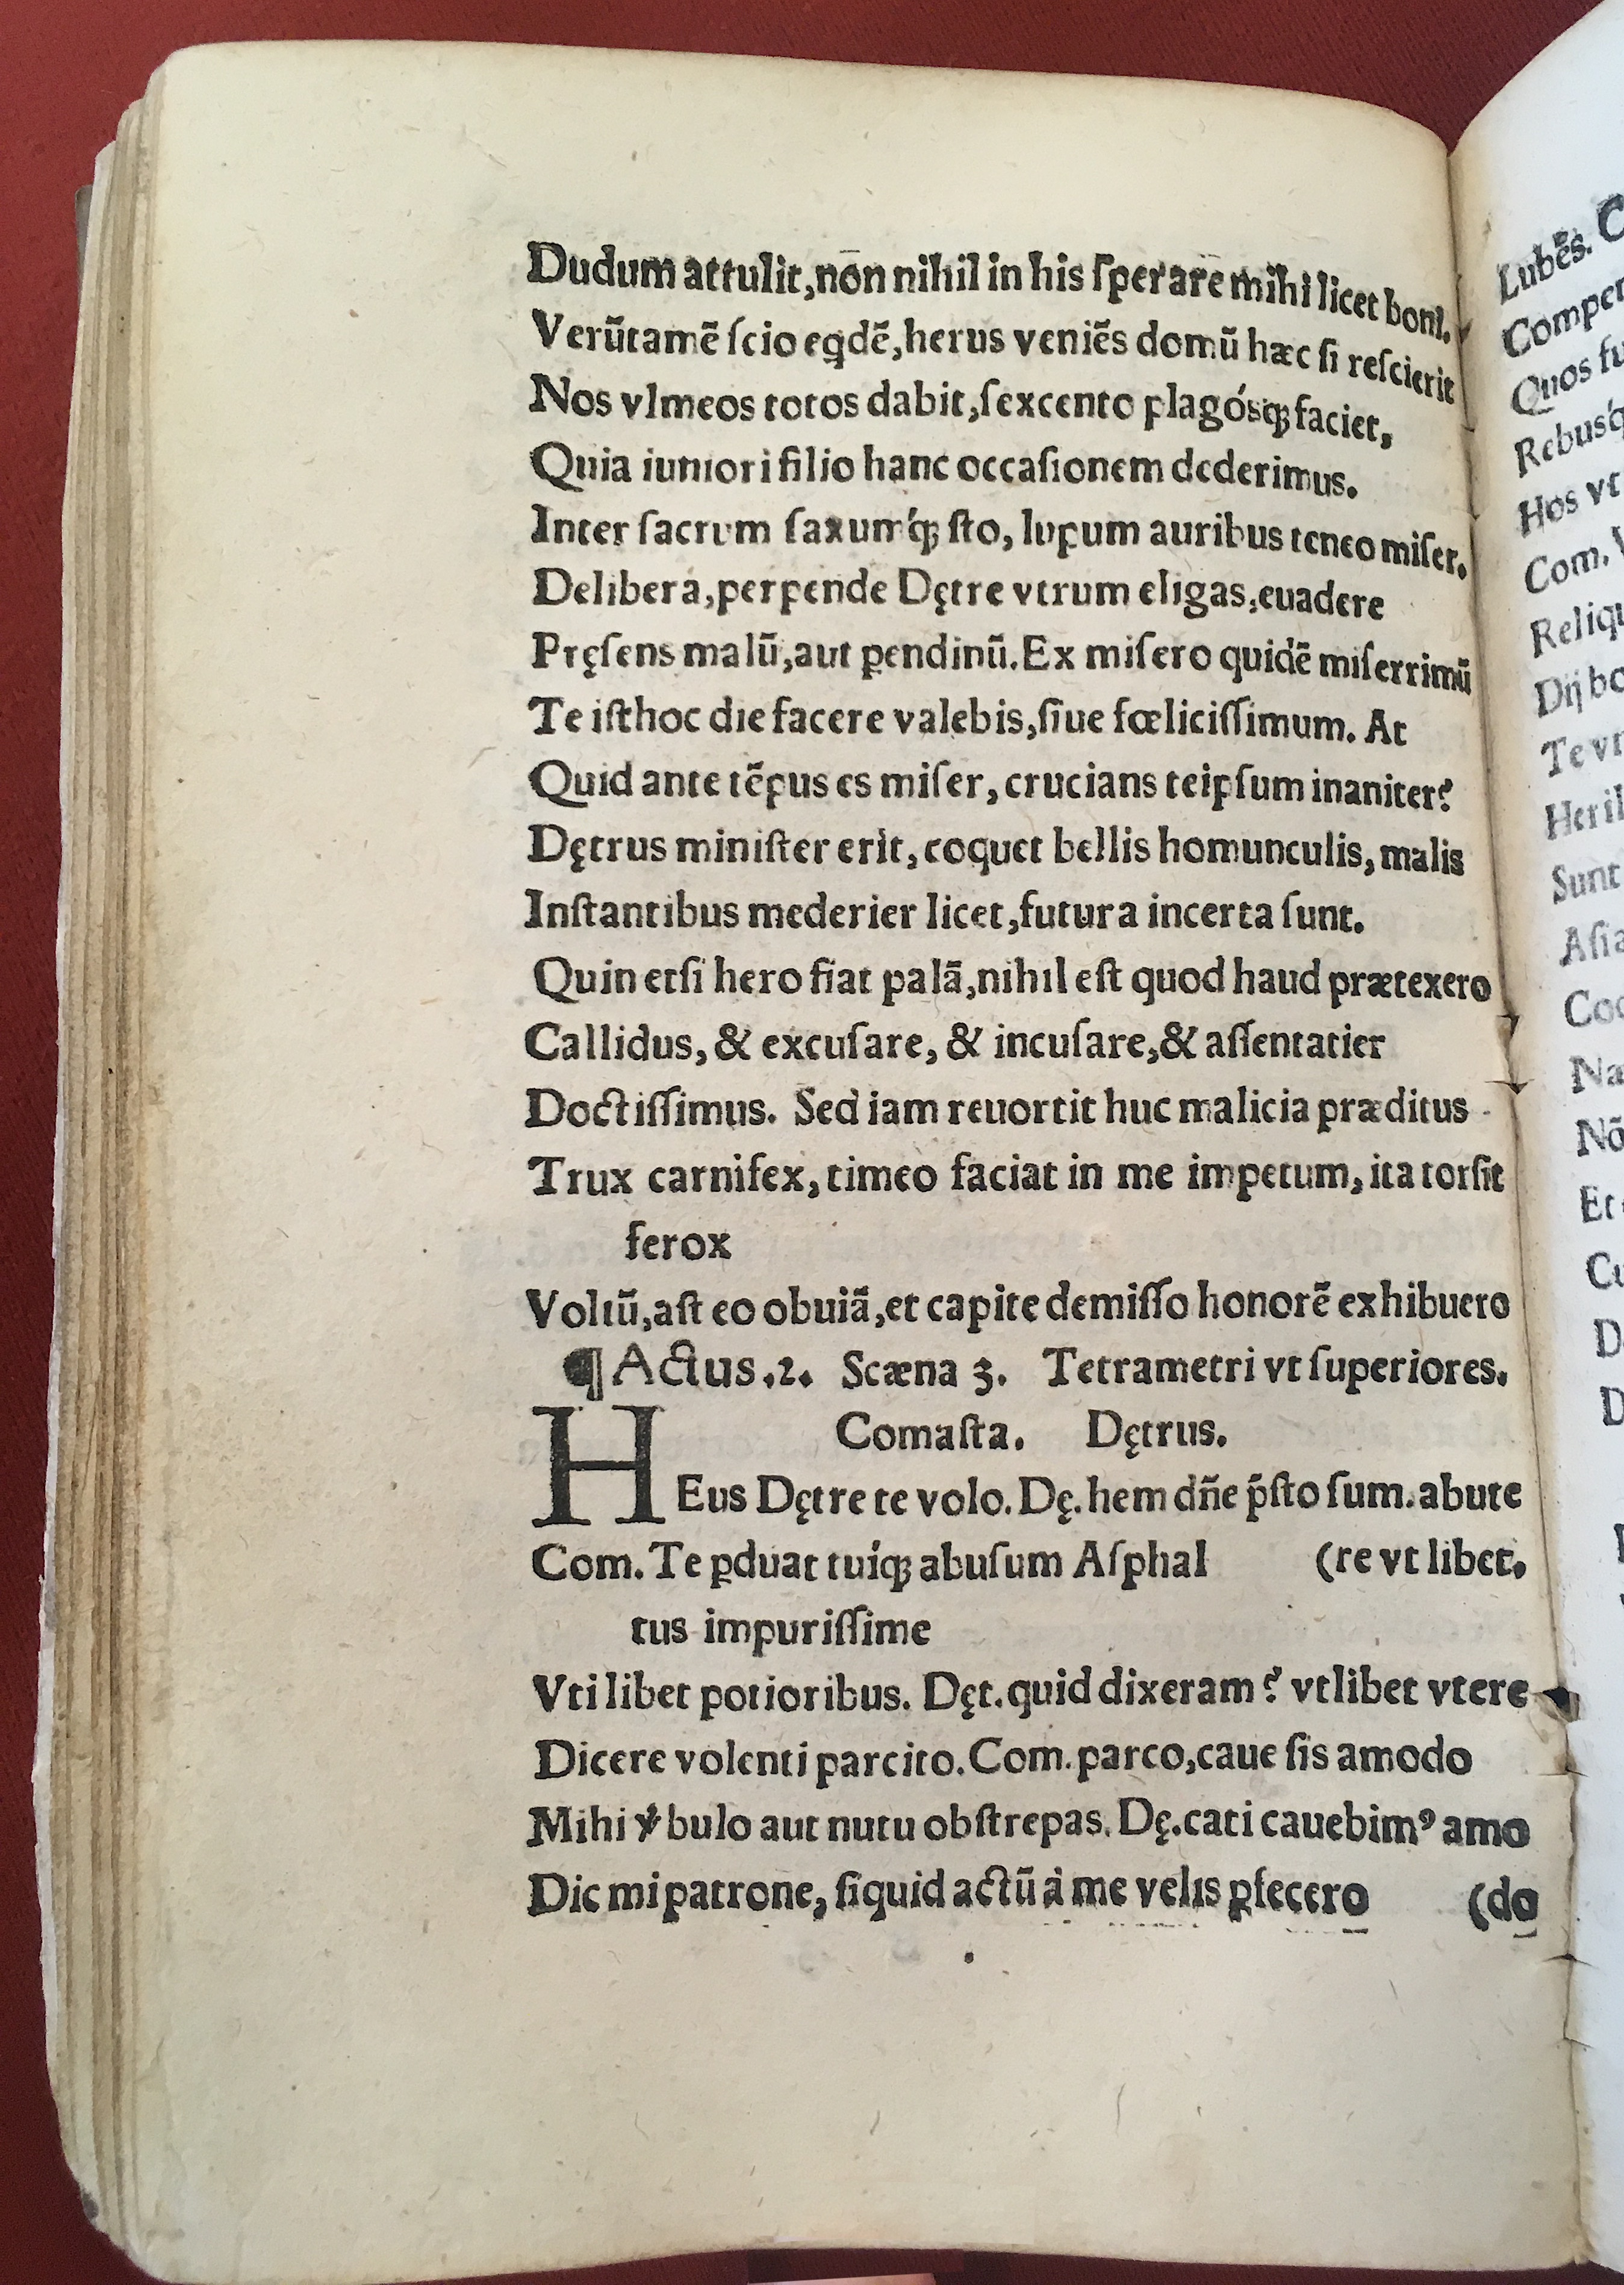 Dudum attulit,non nihil in his ſperare mihi licet boni.
Verũtamẽ ſcio eqdẽ,herus veniẽs domũ hæc ſi reſcierit
Nos vlmeos totos dabit,ſexcento plagóſqꝫ faciet,
Quia iuniori filio hanc occaſionem dederimus.
Inter ſacrum ſaxum´qꝫ ſto, lupum auribus teneo miſer.
Delibera,perpende Dętre vtrum eligas,euadere
Pręſens malũ,aut ꝑendinũ.Ex miſero quidẽ miſerrimũ
Te iſthoc die facere valebis,ſiue fœliciſſimum. At
Quid ante tẽpus es miſer, crucians teipſum inaniter?
Dętrus miniſter erit, coquet bellis homunculis, malis
Inſtantibus mederier licet,futura incerta ſunt.
Quin etſi hero fiat palã,nihil eſt quod haud prætexero
Callidus, & excuſare, & incuſare,& aſſentatier
Doctiſſimus. Sed iam reuortit huc malicia præditus
Trux carnifex, timeo faciat in me impetum, ita torſit
ferox
Voltũ,aſt eo obuiã,et capite demiſſo honorẽ exhibuero
¶ Actus.2. Scæna 3. Tetrametri vt ſuperiores.
Comaſta. Dętrus.
HEus Dętre te volo. Dę. hem dñe p̃ſto ſum. abute
Com. Te ꝑduat tuíqꝫ abuſum Aſphal (re vt libet.
tus impuriſſime
Vti libet potioribus. Dęt. quid dixeram? vtlibet vtere
Dicere volenti parcito. Com. parco,caue ſis amodo
Mihi v̓bulo aut nutu obſtrepas. Dę.cati cauebimꝰ amo
Dic mi patrone, ſiquid actũ à me velis ꝑfecero (do
Lubẽs.
Quos
Hos vt
Com.
Te
Sunt
Et